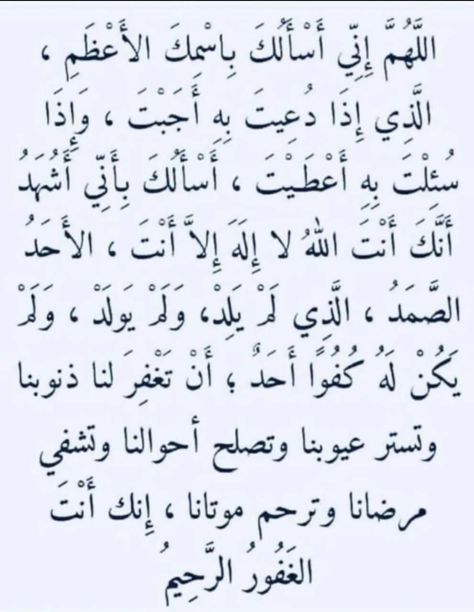 اللَّهُمَّ إِنِّي أَسْأَلُكَ بِاسْمِكَ الأَعْظَمِ ،
الَّذِي إِذَا دُعِيتَ بِهِ أَجَبْتَ ، وَإِذَا
سُئِلْتَ بِهِ أَعْطَيْتَ ، أَسْأَلُكَ بِأَنِّي أَشْهَدُ
أَنَّكَ أَنْتَ اللهُ لا إِلَهَ إِلاَّ أَنْتَ ، الأَحَدُ
الصَّمَدُ ، الَّذِي لَمْ يَلِدْ، وَلَمْ يَولَدْ ، وَلَمْ
يَكُنْ لَهُ كُفُوًا أَحَدٌ ؛ أَنْ تَغْفِرَ لنا ذنوبنا
وتستر عيوبنا وتصلح أحوالنا وتشفي
مرضانا وترحم موتانا ، إِنك أَنْتَ
الغَفُورُ الرَّحِيمُ